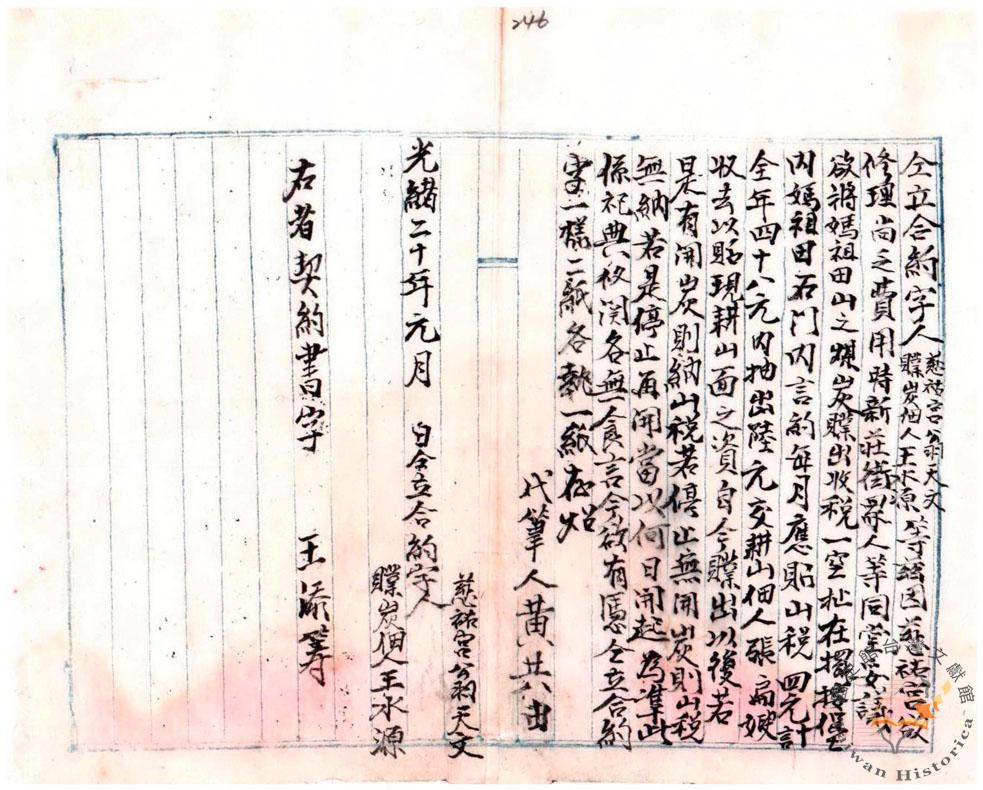 246
仝立合約字人慈祐宮翁天文
贌炭佃人王永源等緣因慈祐宮被
修理尚乏費用時新莊街眾人等同堂妥議
欲將媽祖田山之煤炭贌出收稅一空址在擺接堡
內媽祖田石門內言約每月應貼山稅四元計
全年四十八元內抽出陸元交耕山佃人張扁嫂
收去以貼現耕山面之資自今贌出以後若
是有開炭則納山稅若停止無開炭則山稅
無納若是停止再開當以何日開起為準此
係祀典攸関各無食言今欲有憑仝立合約
字一樣二紙各執一紙存炤
代筆人黃共由
慈祐宮翁天文
光緒二十年元月 日仝立合約字人
贌炭佃人王永源
右者契約書字 王添筹
館台灣文獻館
Taiwan Historica